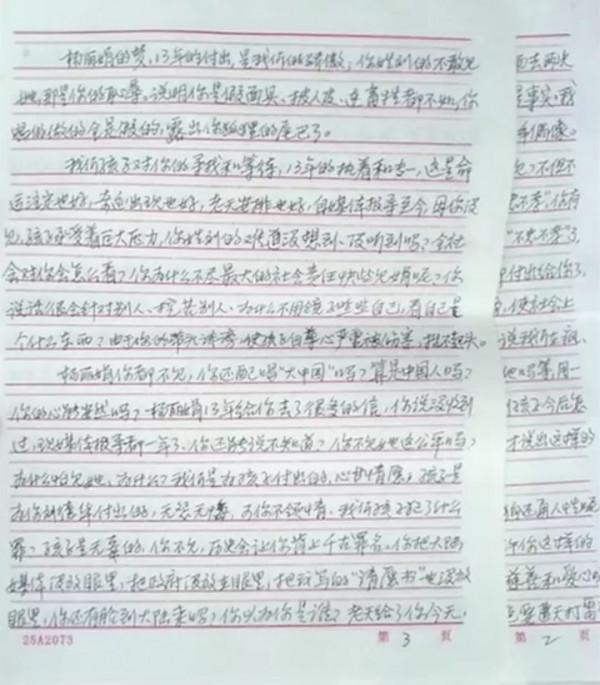 杨丽娟的梦，13年的付出，是我们的骄傲，你姓刘的不敢见
她，那是你的耻辱，说明你是假面具、披人皮、连畜牲都不如，你
唱的做的全是假的，露出你狐狸的尾巴了。
我们孩子对你的寻找和等待，13年的执着和专一，这是命
运注定也好，奇迹出现也好，老天安排也好，自媒体报导至今，因你没
见，孩子承受着巨大压力，你姓刘的难道没想到、没听到吗？全社
会对你会怎么看？你为什么不尽最大的社会责任快些见娟呢？你
说话很会针对别人、挖苦别人、为什么不用镜子照照自己，看自己是
个什么东西？由于你的
使孩子自尊心严重被伤害，抬不起头。
杨丽娟你都不见，你还配唱“大中国”吗？算是中国人吗？
你的心能安然吗？杨丽娟13年给你去了很多的信，你说没收到
过，现媒体报导都一年了，你还能说不知道？你不见她这公平吗？
为什么怕见她，为什么？我们是为孩子付出的，心甘情愿，孩子是
为你刘德华付出的，无怨无悔，而你不领情。我们孩子犯了什么
罪？孩子是无辜的，你不见，历史会让你背上千古罪名。你把大陆
媒体没放眼里，把政府没放在眼里，把我写的“请愿书”也没放
眼里，你还有脸到大陆来吗？你以为你是谁？老天给了你今天，
25A2073
第 3 页
去两次
是事实，我
不但不
你有
“不忠不孝”了，
付出给你了，
使社会上
说我们在
孩子今后怎
才说出这样的
你这样的
慈善和爱心
要遭天打雷
第 2 页